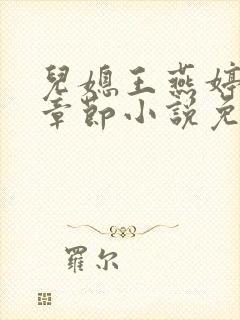 兒媳王燕婷
章節小說免
羅尔